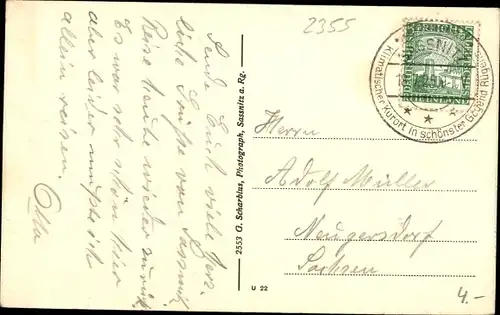 2355
Sende Euch viele herz.
liche Grüße von Sassnitz.
Reise heute wieder zurück
Es war sehr schön hier
aber leider mußte ich
allein reisen.
Otto
2553 G. Scharbius, Photograph, Sassnitz a. Rg.
U 22
SASSNITZ
Klimatischer Kurort in schönster Gegend Rügens
Herrn
Adolf Müller
Neugersdorf
Sachsen
4.-